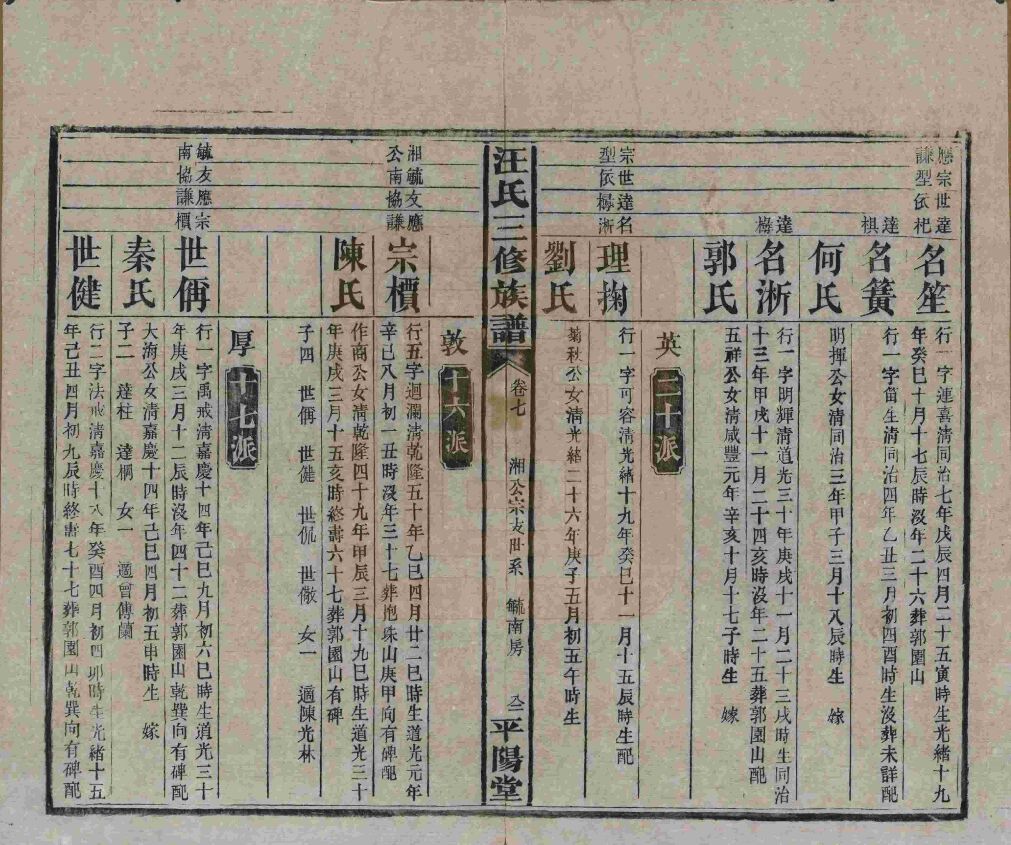 應宗世達
謙型依杞
名笙
行一字連喜清同治七年戊辰四月二十五寅時生光緒十九
年癸巳十月十七辰時沒年二十六葬郭園山
達棋
名簧
行一字笛生清同治四年乙丑三月初四酉時生沒葬未詳配
何氏
明揮公女清同治三年甲子三月十八辰時生 嫁
達樳
名淅
行一字明輝清道光三十年庚戌十一月二十三戌時生同治
十三年甲戌十一月二十四亥時沒年二十五葬郭園山配
郭氏
五祥公女清咸豐元年辛亥十月十七子時生 嫁
英 三十派
宗世達名
型依樳淅
理掬
行一字可容清光緒十九年癸巳十一月十五辰時生配
劉氏
菊秋公女清光緒二十六年庚子五月初五午時生
汪氏三修族譜
卷七 湘公宗支世系 毓南房
平陽堂
敦 十六派
湘毓友應
公南協謙
宗櫝
行五字迴瀾清乾隆五十年乙巳四月廿二巳時生道光元年
辛巳八月初一丑時沒年三十七葬炮珠山庚甲向有碑配
陳氏
作商公女清乾隆四十九年甲辰三月十九巳時生道光三十
年庚戌三月十五亥時終壽六十七葬郭園山有碑
子四 世偁 世健 世侃 世儆 女一 適陳光林
厚 十七派
毓友應宗
南協謙櫝
世偁
行一字禹戒清嘉慶十四年己巳九月初六巳時生道光三十
年庚戌三月十二辰時沒年四十二葬郭園山乾巽向有碑配
秦氏
大海公女清嘉慶十四年己巳四月初五申時生 嫁
子二 達柱 達棡 女一 適曾傳蘭
世健
行二字法戒清嘉慶十八年癸酉四月初四卯時生光緒十五
年己丑四月初九辰時終壽七十七葬郭園山乾巽向有碑配